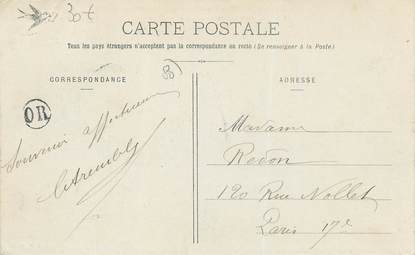 30€
CARTE POSTALE
Tous les pays étrangers n'acceptent pas la correspondance au recto (Se renseigner à la Poste)
CORRESPONDANCE
ADRESSE
OR
Souvenir affectueux
Madame
Redon
120 Rue Nollet
Paris 17e